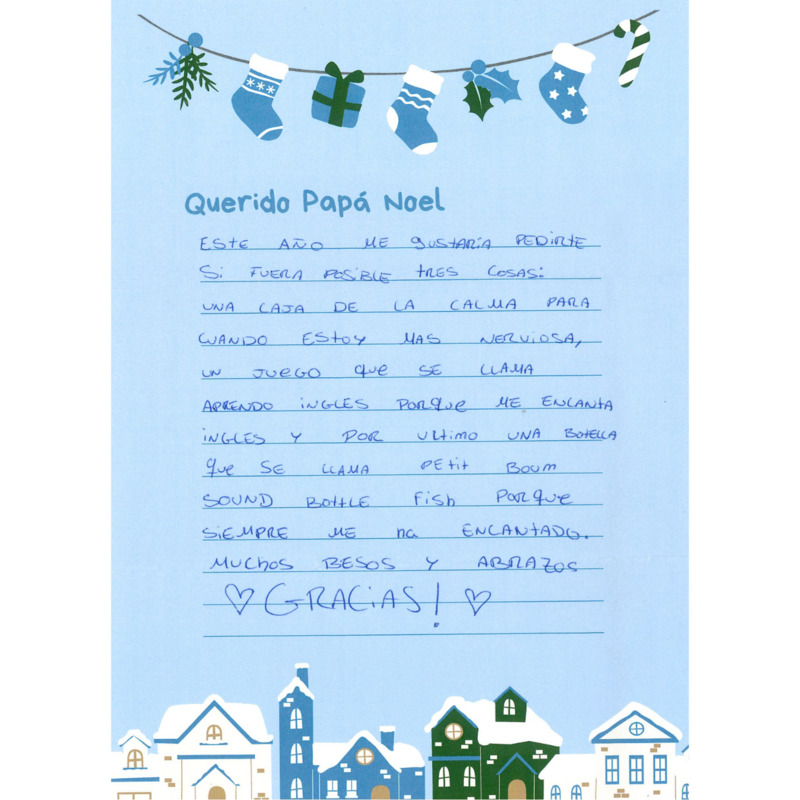 Querido Papá Noel
ESTE AÑO ME gustaría PEDIRTE
Si FUERA POSIBLE tRES COSAS:
UNA CAJA DE LA CALMA PARA
CUANDO ESTOY MAS NERVIOSA,
UN JUEGO que SE LLAMA
APRENDO iNGLES PORque ME ENCANTA
iNGLES Y POR ULTIMO UNA BOTELLA
que SE LLAMA PEtit BOUM
SOUND BOttLE Fish PORque
SIEMPRE ME ha ENCANTADO.
MUCHOS BESOS Y ABRAZOS
♡ GRACIAS! ♡